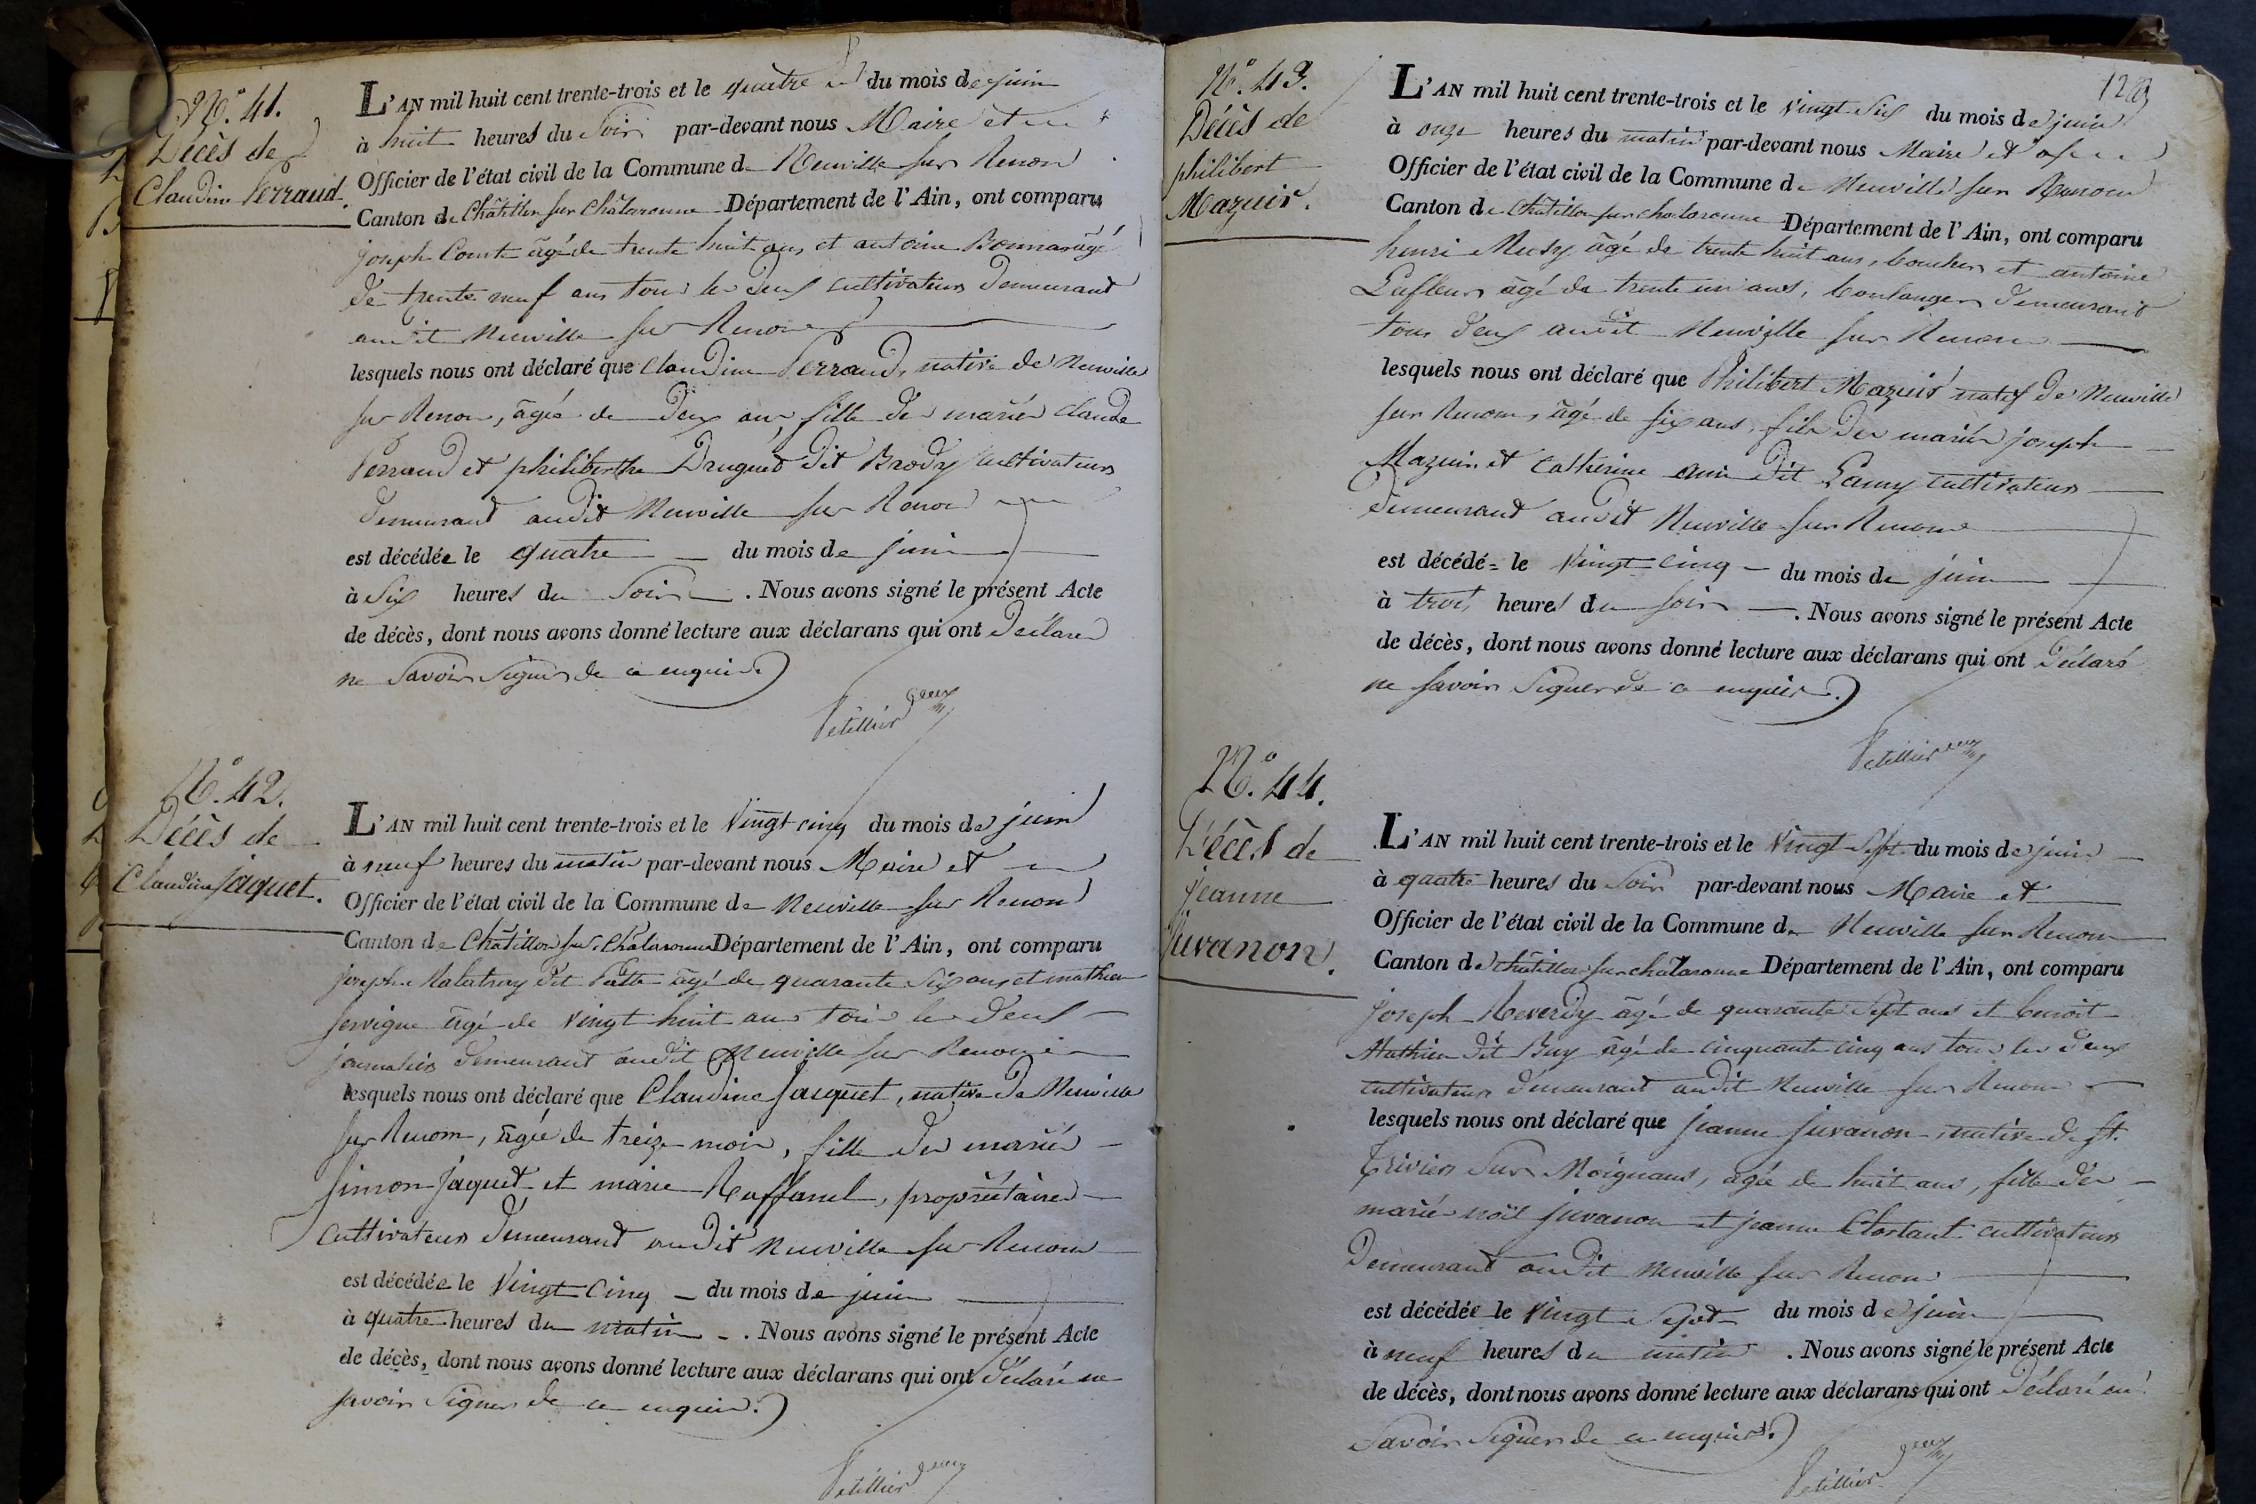 N.° 41.
Décès de
Claudine Perraud.
L'AN mil huit cent trente-trois et le quatre du mois de juin
à huit heures du Soir par-devant nous Maire et
Officier de l'état civil de la Commune de Neuville sur Renon
Canton de Châtillon sur Chalaronne Département de l'Ain, ont comparu
joseph Comte âgé de trente huit ans et antoine Bonnard âgé
de trente neuf ans tous les deux cultivateurs demeurant
audit Neuville sur Renon
lesquels nous ont déclaré que Claudine Perraud, native de Neuville
sur Renon, âgée de deux ans, fille des mariés Claude
Perraud et philiberthe Druguet dit Brody cultivateurs
demeurant audit Neuville sur Renon
est décédée le quatre du mois de juin
à Six heures du Soir. Nous avons signé le présent Acte
de décès, dont nous avons donné lecture aux déclarans qui ont déclaré
ne Savoir Signer de ce enquis.
N.° 42.
Décès de
Claudine jaquet.
L'AN mil huit cent trente-trois et le Vingt cinq du mois de juin
à neuf heures du matin par-devant nous Maire et
Officier de l'état civil de la Commune de Neuville sur Renon
Canton de Châtillon sur Chalaronne Département de l'Ain, ont comparu
joseph dit âgé de quarante Six ans et mathieu
Servigne âgé de Vingt huit ans tous les deux
journaliers demeurant audit Neuville sur Renon
lesquels nous ont déclaré que Claudine Jacquet, native de Neuville
sur Renon, âgée de treize mois, fille des mariés
Simon jaquet et marie Ruffanel, propriétaires
cultivateurs demeurant audit Neuville sur Renon
est décédée le Vingt Cinq du mois de juin
à quatre heures du matin. Nous avons signé le présent Acte
de décès, dont nous avons donné lecture aux déclarans qui ont déclaré ne
savoir Signer de ce enquis.
N.° 43.
Décès de
philibert
Mazuir.
L'AN mil huit cent trente-trois et le Vingt Six du mois de juin
à onze heures du matin par-devant nous Maire et
Officier de l'état civil de la Commune de Neuville sur Renon
Canton de Châtillon sur chalaronne Département de l'Ain, ont comparu
henri Musy âgé de trente huit ans, boucher et antoine
Lafleur âgé de trente un ans, boulanger demeurant
tous deux audit Neuville sur Renon
lesquels nous ont déclaré que Philibert Mazuir natif de Neuville
sur Renon, âgé de six ans, fils des mariés joseph
Mazuir et Catherine dit Lamy cultivateurs
demeurant audit Neuville sur Renon
est décédé le Vingt Cinq du mois de juin
à trois heures du soir. Nous avons signé le présent Acte
de décès, dont nous avons donné lecture aux déclarans qui ont déclaré
ne savoir Signer de ce enquis.
N.° 44.
Décès de
jeanne
Juvanon.
L'AN mil huit cent trente-trois et le Vingt Sept du mois de juin
à quatre heures du Soir par-devant nous Maire et
Officier de l'état civil de la Commune de Neuville sur Renon
Canton de châtillon sur chalaronne Département de l'Ain, ont comparu
joseph Reverdy âgé de quarante Sept ans et benoit
Mathieu dit Buy âgé de cinquante cinq ans tous les deux
cultivateurs demeurant audit Neuville sur Renon
lesquels nous ont déclaré que jeanne juvanon, native de St.
Trivier Sur Moignans, âgée de huit ans, fille des
mariés noël juvanon et jeanne Chortant cultivateurs
Demeurant audit Neuville sur Renon
est décédée le Vingt Sept du mois de juin
à neuf heures du matin. Nous avons signé le présent Acte
de décès, dont nous avons donné lecture aux déclarans qui ont déclaré ne
Savoir Signer de ce enquis.